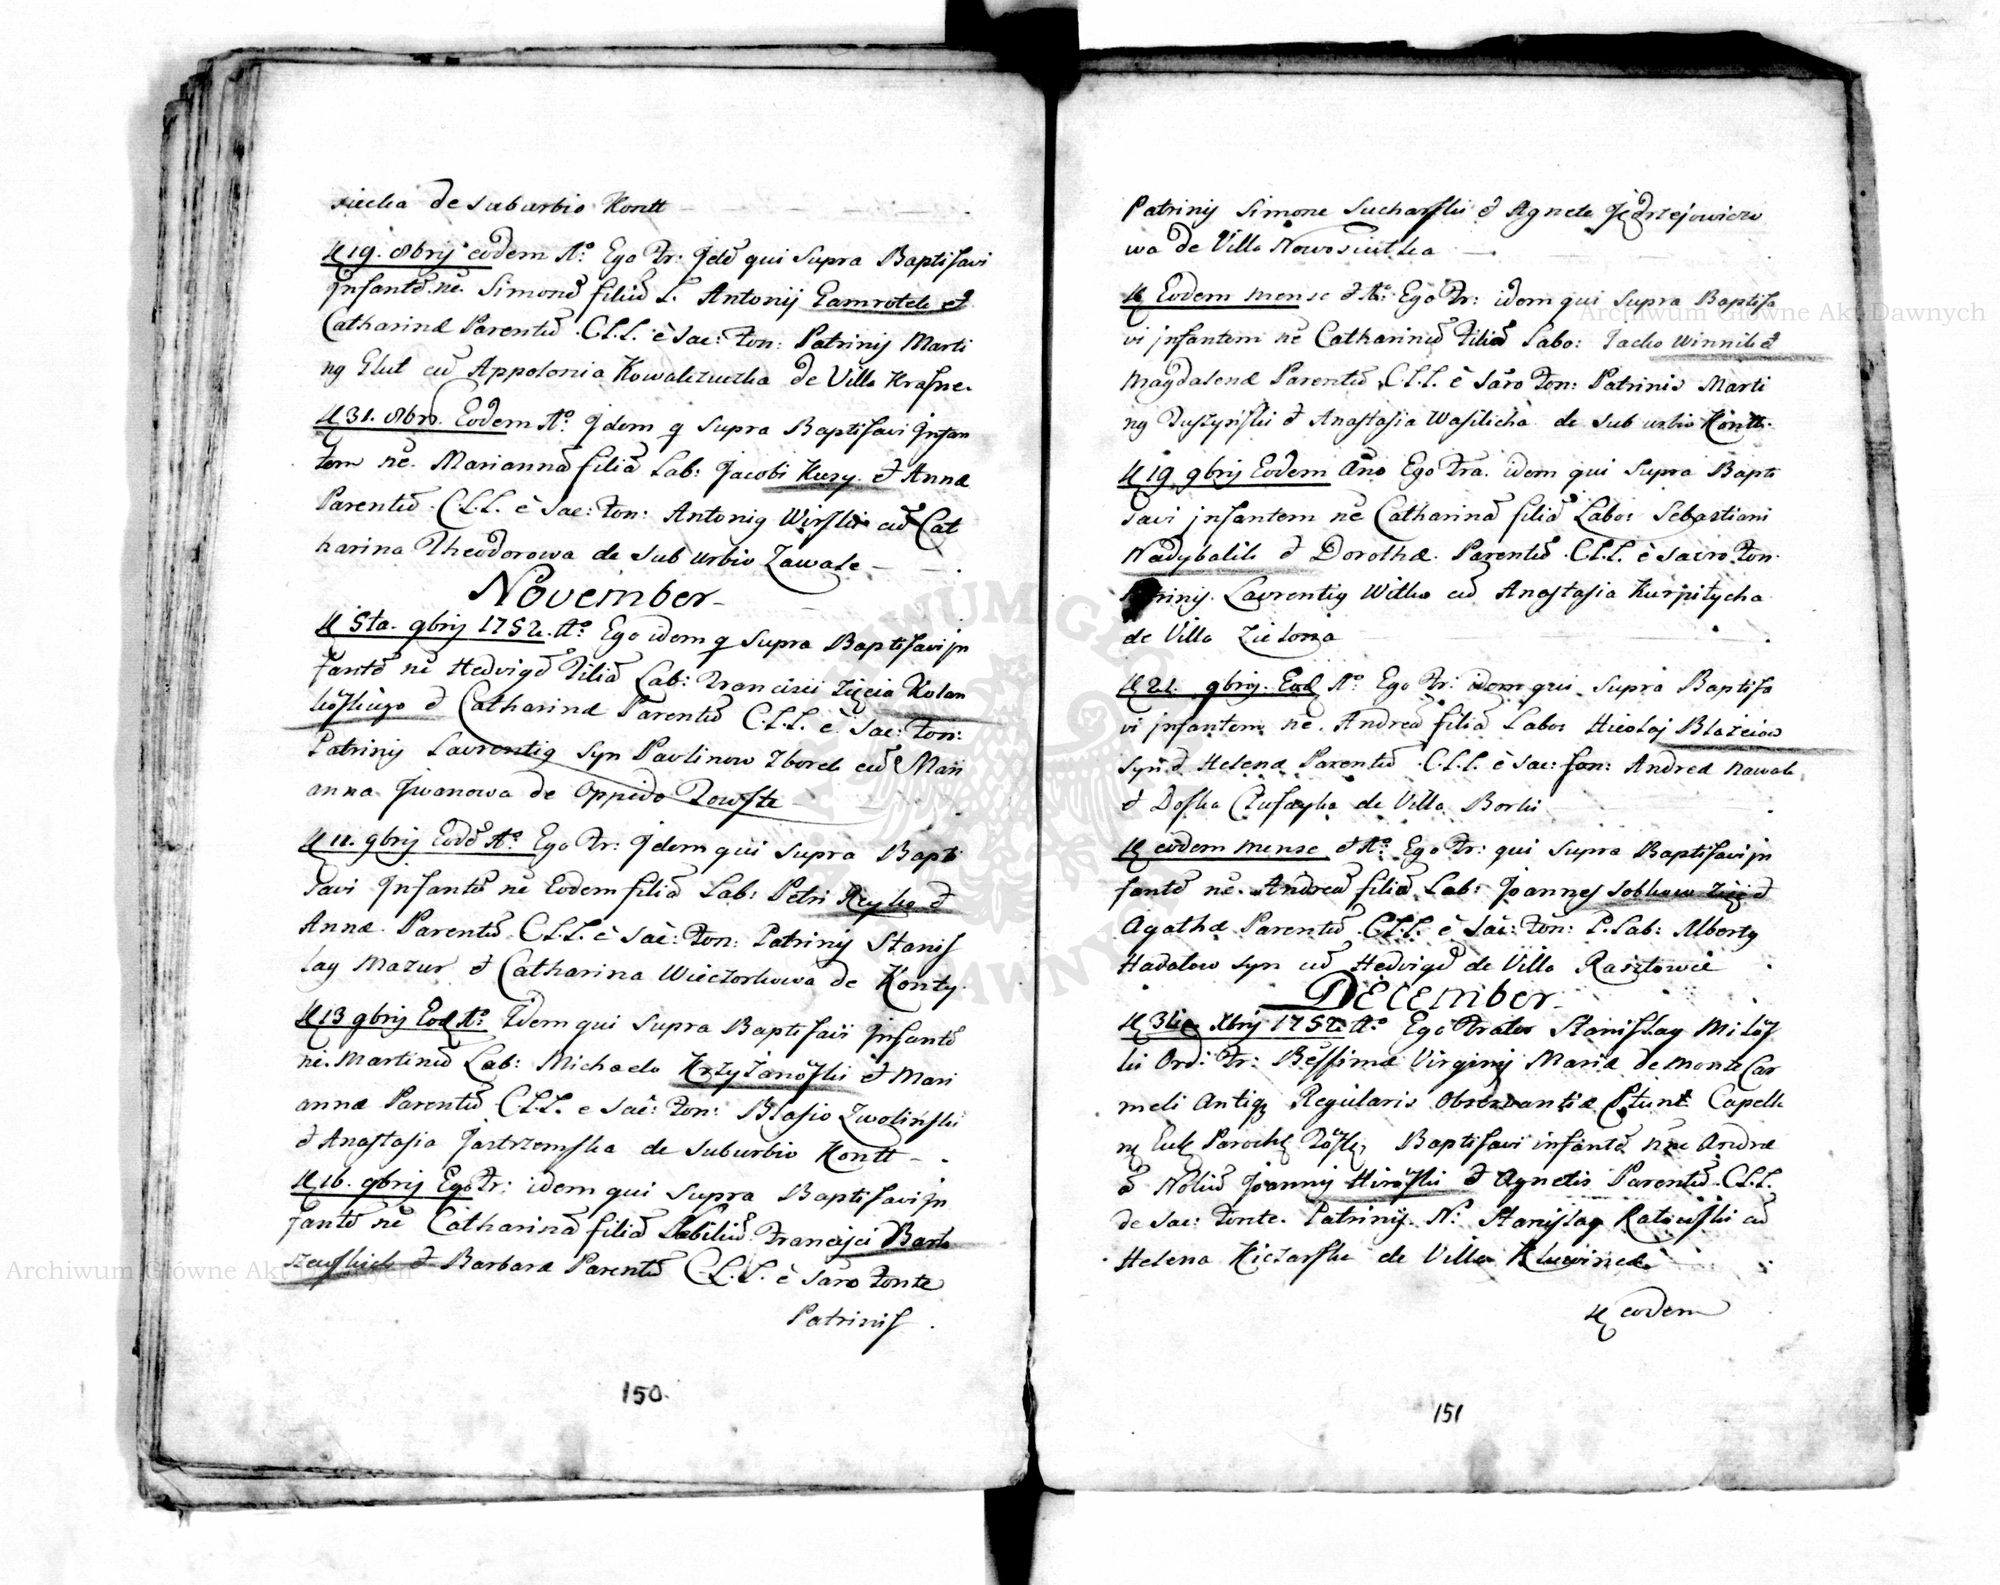 siecka de suburbio Kontt
19. 8bris eodem Aº. Ego Fr: Jdē qui supra Baptisavi
Jnfantē nē. Simonē filiū L. Antonij Gamrotek et
Catharinæ Parentū C.L.L. è Sac: Fon: Patrinis Marti
ng Glut cū Appolonia Kowalczuczka de Villa Krasne.
31. 8bris. Eodem Aº. Jdem q supra Baptisavi Jnfan
tem nē. Mariannā filiā Lab: Jacobi Kuzy. et Annæ
Parentū. C.L.L. è Sac: Fon: Antonig Wirski cū Cat
harina Theodorowa de sub urbio Zawale
November
5ta. 9bris 1752. Aº. Ego idem q supra Baptisavi jn
fantē nē Hedvigē Filiā Lab: Francisci Zięcia Kolan
kōskiego et Catharinæ Parentū C.L.L. è Sac: Fon:
Patrinis Laurentig syn Pavlinow Zborek cū Mari
anna Jwanowa de Oppido Towste
11. 9bris Eodē Aº. Ego Fr: Jdem qui supra Bapti
savi Jnfantē nē Eodem filiā Lab: Petri Reyko et
Annæ Parentū C.L.L. è Sac: Fon: Patrinis Stanis
lag Mazur et Catharina Wieczorkowa de Konty.
13 9bris Eod Aº. Idem qui supra Baptisavi Jnfantē
nē. Martinū Lab: Michaelo Krzyżanōski et Mari
annæ Parentū C.L.L. e Sac: Fon: Blasio Zwoliński
et Anastasia Jastrzemska de suburbio Kontt
16. 9bris Ego Fr: idem qui supra Baptisavi Jn
fantē nē Catharinā filiā Nobiliū Francisci Barto
szewskich et Barbaræ Parentū C.L.L. è Sacro Fonte
Patrinis
150.
Patrinis Simone Sucharski et Agnete Jędrzejowiczo
wa de Villa Nowosiułka
Eodem mense et Aº. Ego Fr: idem qui supra Baptisa
vi jnfantem nē Catharinā Filiā Labo: Jacko Winnik et
Magdalenæ Parentū C.L.L. è Sacro Fon: Patrinis Marti
ng Duszyński et Anastasia Wasilicha de sub urbio Kontt.
19 9bris Eodem Año Ego Fra. idem qui supra Bapti
savi jnfantem nē Catharinā filiā Labo: Sebastiani
Nadybalik et Dorothæ. Parentū. C.L.L. è Sacro Fon.
Patrinis. Laurentig Witko cū Anastasia Kurpitycha
de Villa Zielona
21. 9bris. Eod Aº. Ego Fr: idem qui supra Baptisa
vi jnfantem nē. Andreā filiā Labo: Nicolaj Błażeiow
syn et Helenæ Parentū C.L.L. è Sac: fon: Andrea Kawale
et Doska de Villa Borki
eodem mense et Aº. Ego Fr: qui supra Baptisavi jn
fantē nē. Andreā filiā Lab: Joannes Sobkow Zięć et
Agathæ Parentū C.L.L. è Sac: Fon: P. Lab: Alberty
Hadałow syn cū Hedvigē de Villa Rasztowce
December
3tia Xbris 1752. Aº. Ego Frater Stanislag Milōs
ki Ord: Fr: Bēssimæ Virginis Mariæ de Monte Car
meli Antiq Regularis Observantiæ Ptunt Capella
Baptisavi infantē nne Andre
ā Nobiliū Joannis Hirōski et Agnetis Parentū C.L.L.
de Sac: Fonte. Patrinis. N. Stanislag Ratowski cū
Helena Kiczarska de Villa Kluwince
eodem
151
Archiwum Główne Akt Dawnych
Archiwum Główne Akt Dawnych